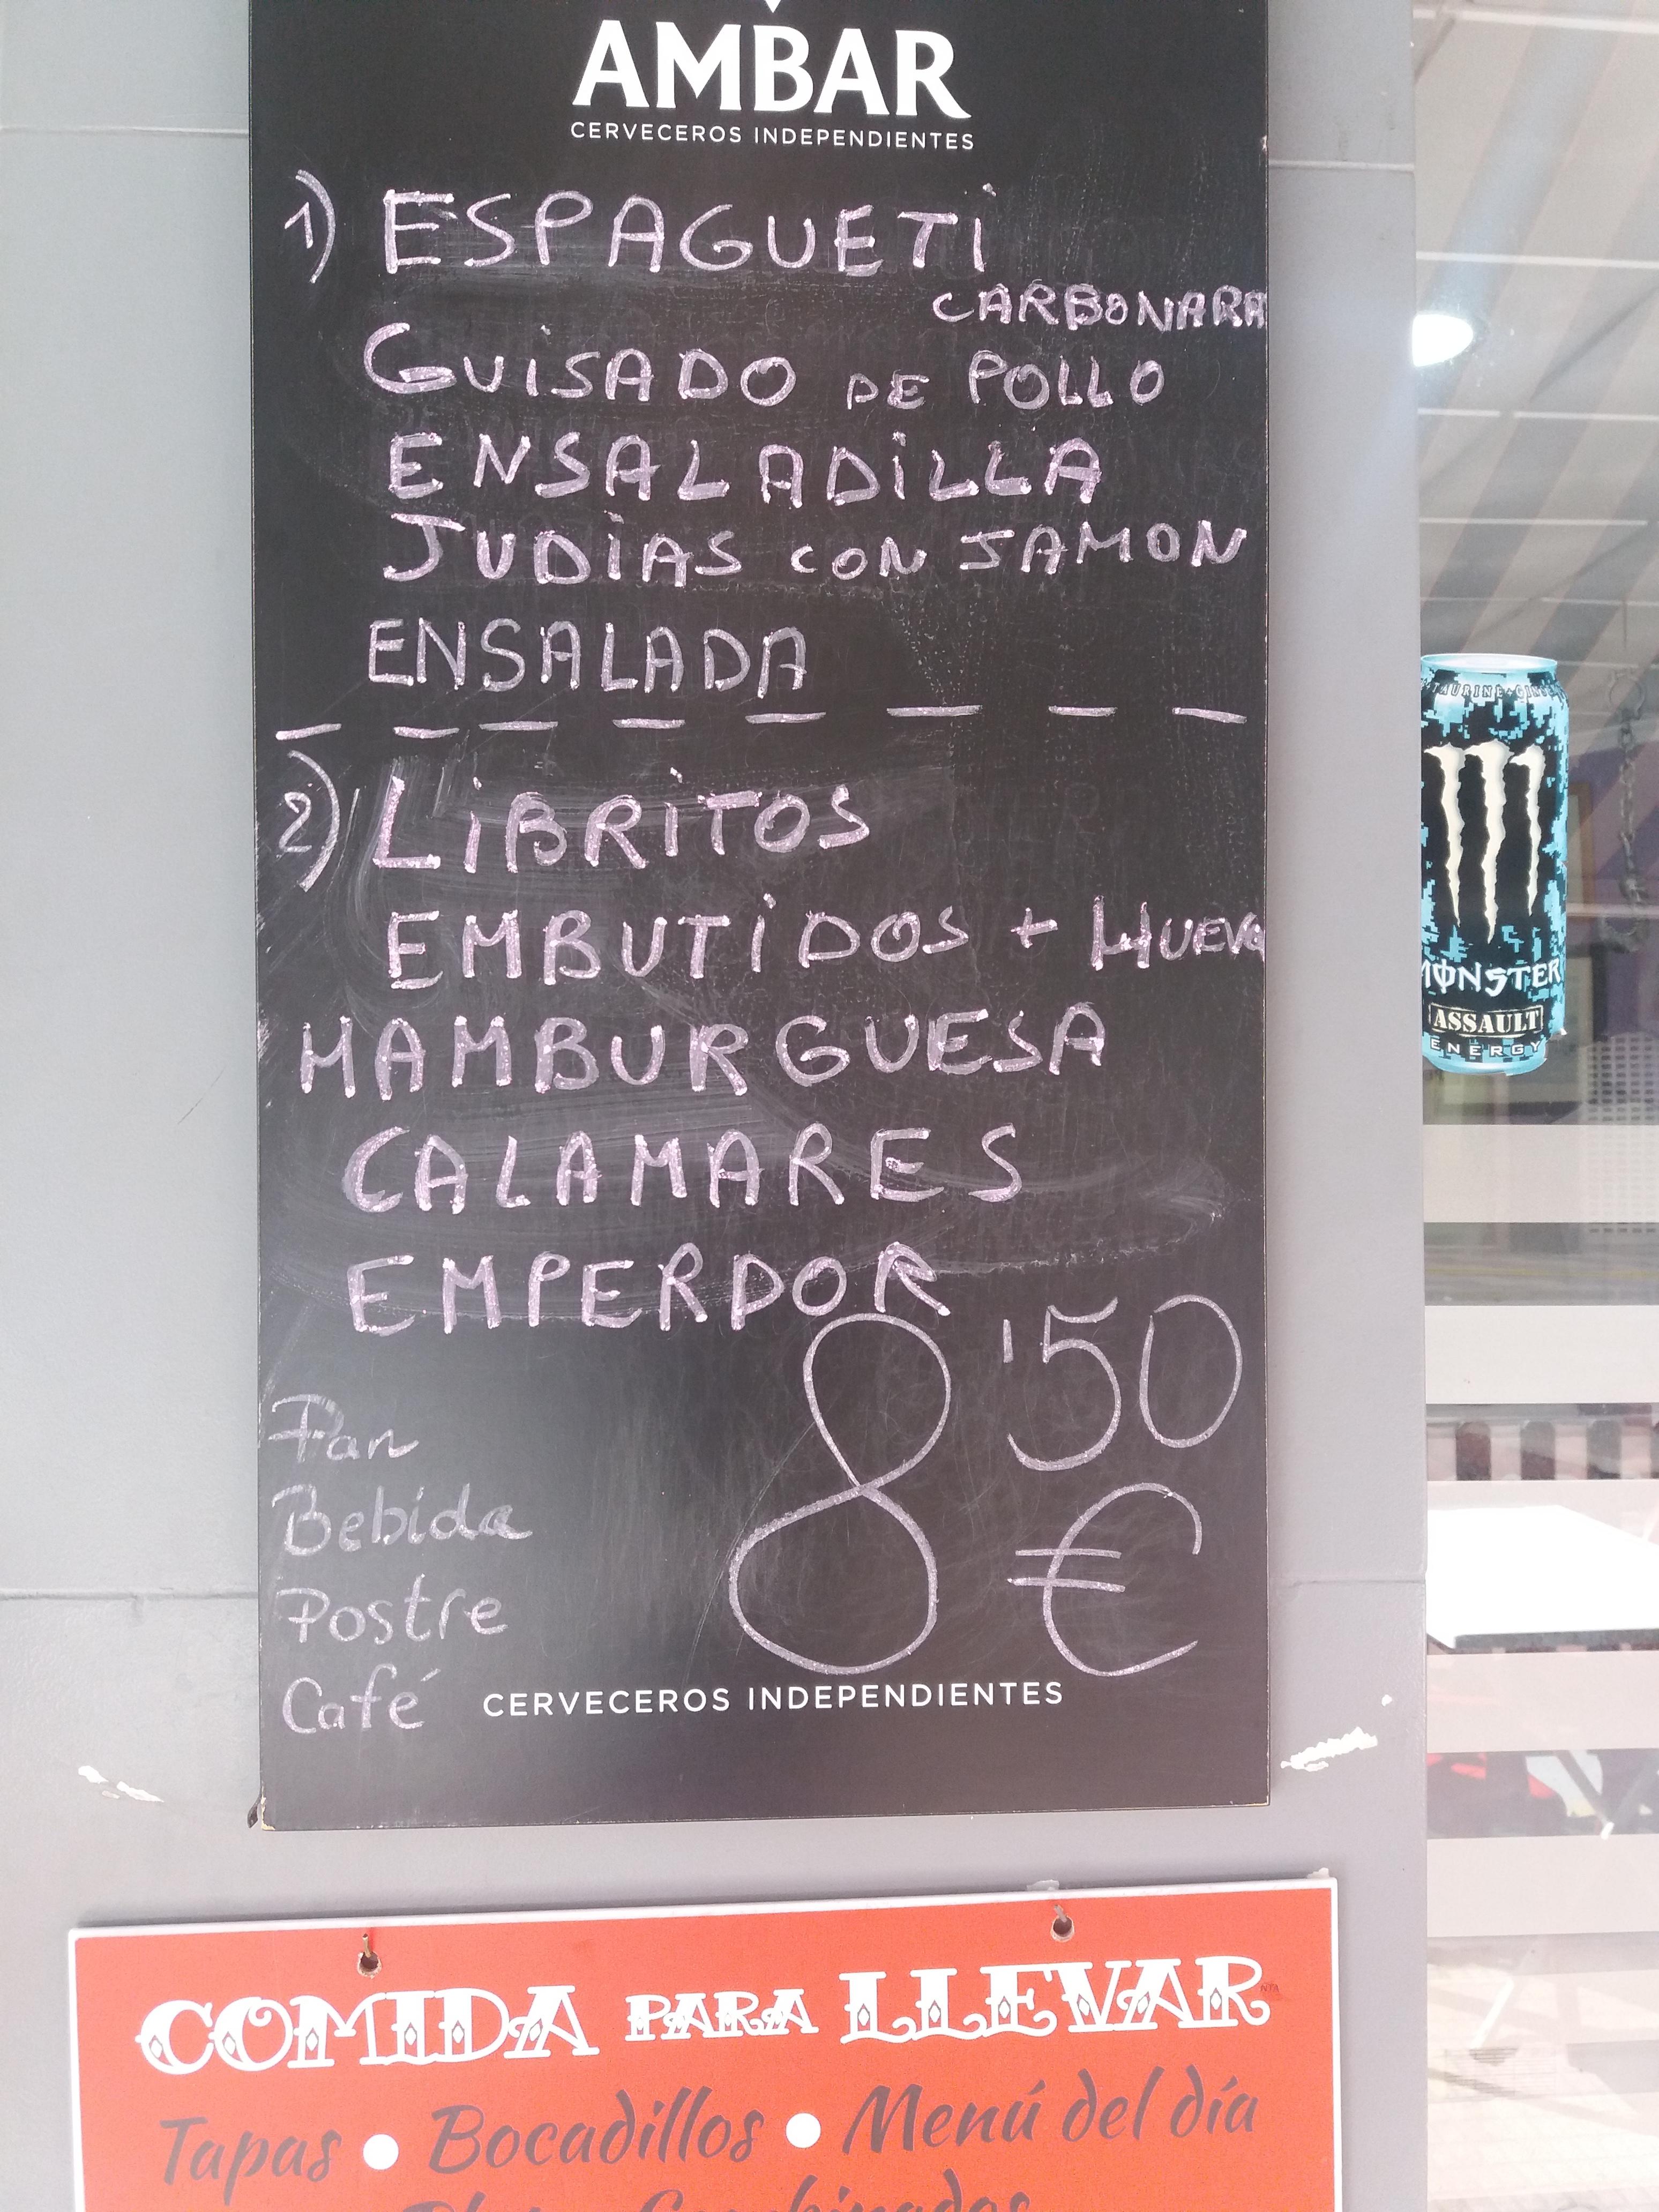 AMBAR
CERVECEROS INDEPENDIENTES
1) ESPAGUETI
CARBONARA
GUISADO DE POLLO
ENSALADILLA
JUDIAS CON JAMON
ENSALADA
2) LIBRITOS
EMBUTIDOS + HUEVO
HAMBURGUESA
CALAMARES
EMPERDOR
8'50
€
Pan
Bebida
Postre
Café
CERVECEROS INDEPENDIENTES
COMIDA PARA LLEVAR
Tapas • Bocadillos • Menú del día
Combinados
MONSTER
ASSAULT
ENERGY